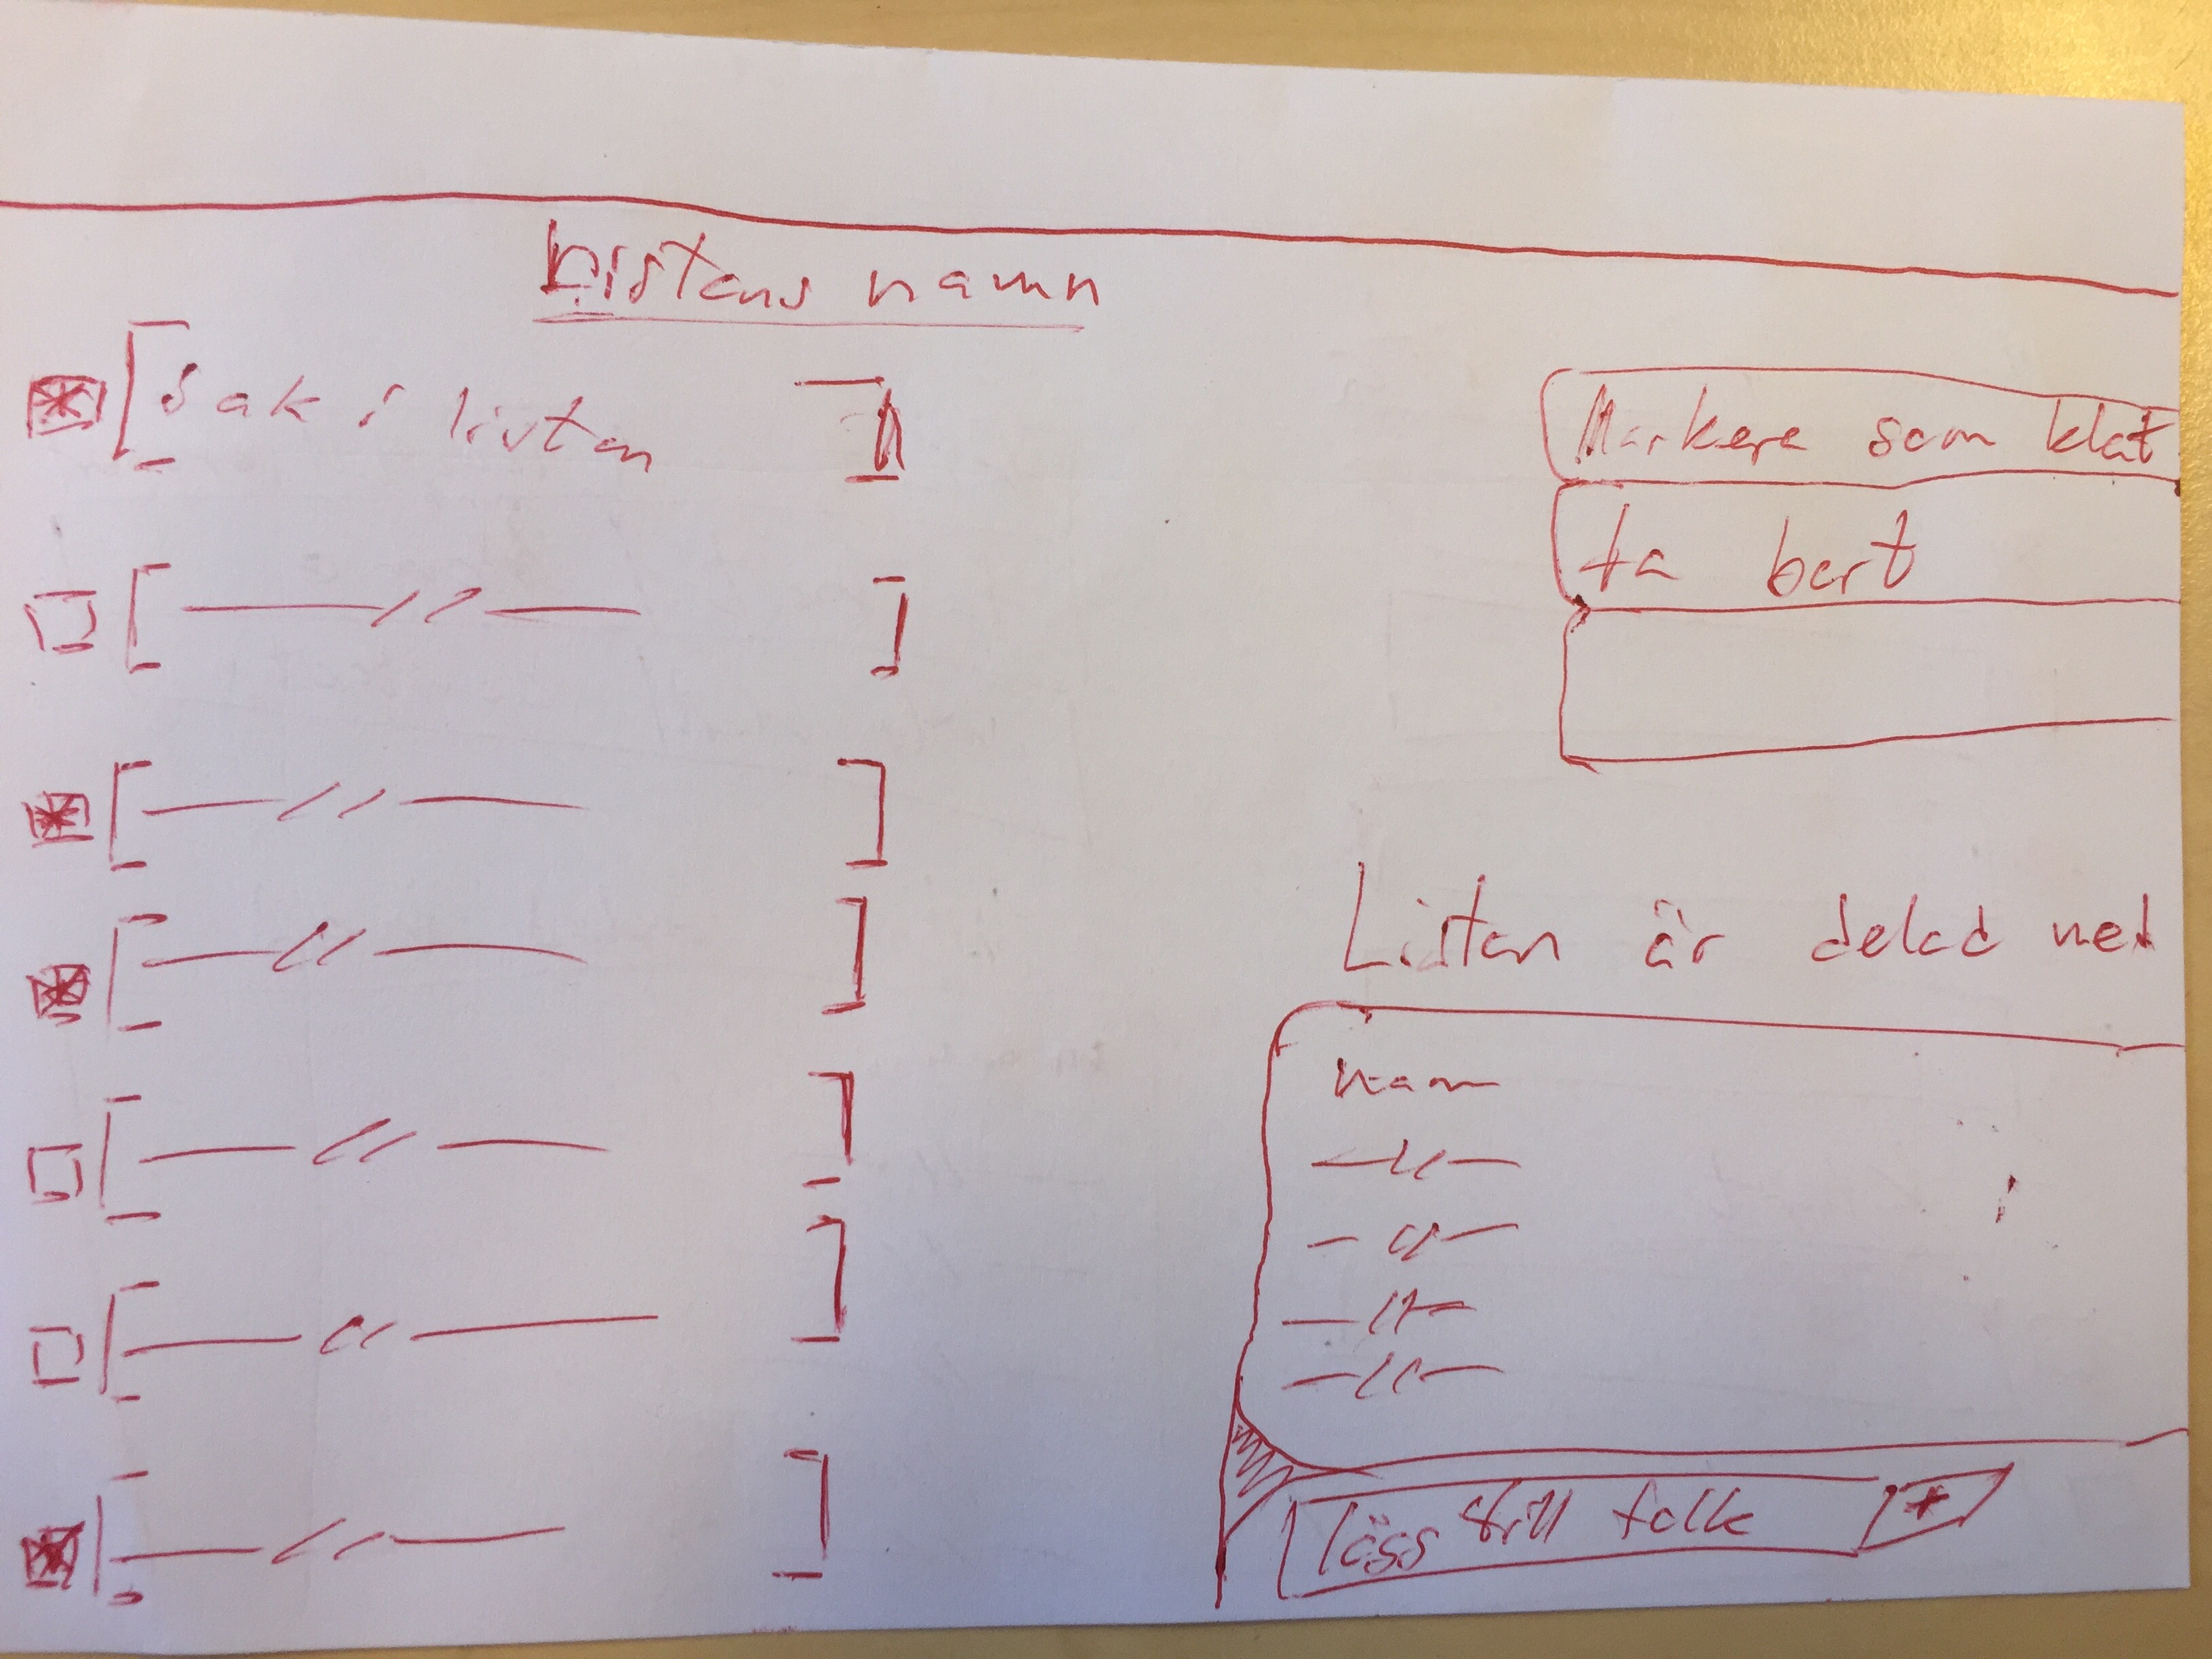 Listans namn
Sak i listan
— 〃 —
— 〃 —
— 〃 —
— 〃 —
— 〃 —
— 〃 —
Markera som klat
ta bort
Listan är delad med
namn
— 〃 —
— 〃 —
— 〃 —
— 〃 —
lägg till folk +